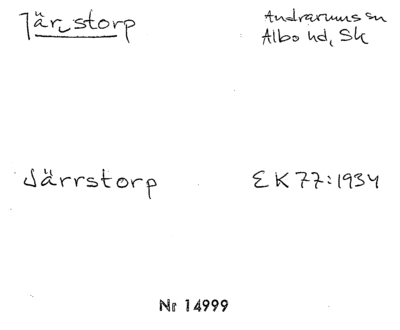 Järrstorp
Andrarums sn
Albo hd, Sk
Järrstorp
EK 77:1934
Nr 14999